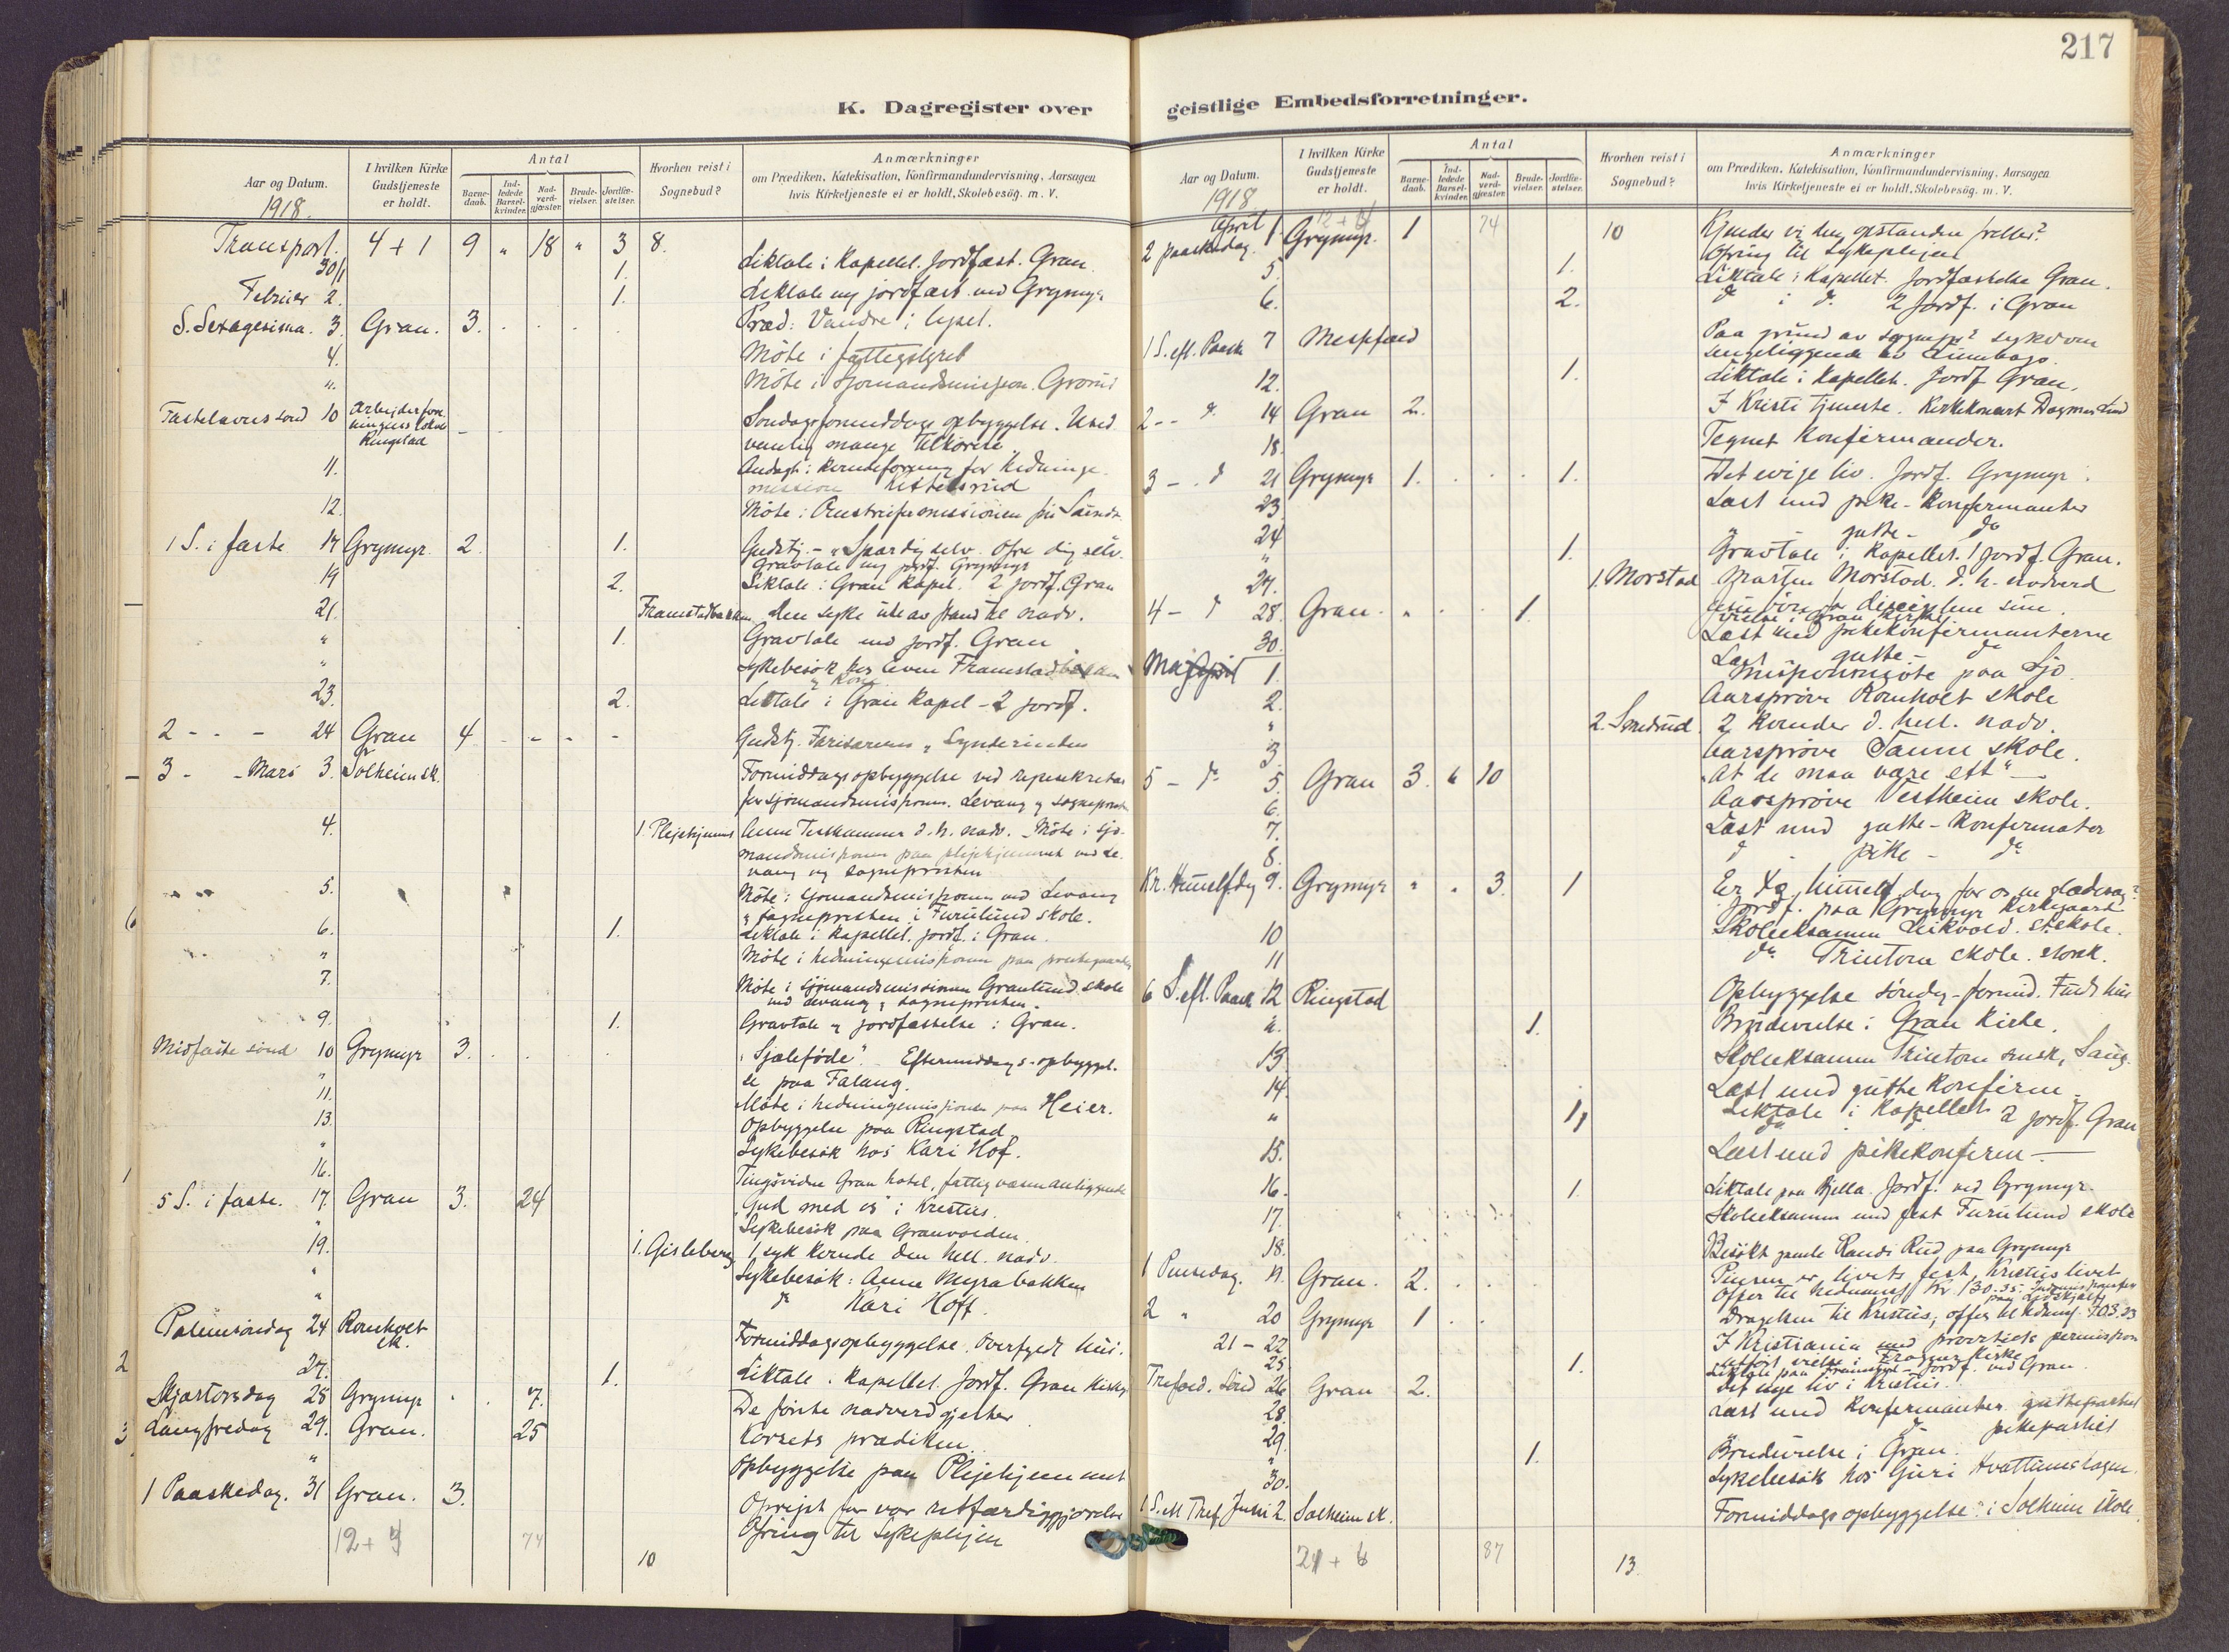 217
K. Dagregister over
Aar og Datum.
1918.
I hvilken Kirke Gudstjeneste er holdt.
Antal
Barne-daab.
Ind-ledede Barsel-kvinder.
Nad-verd-gjæster.
Brude-vielser.
Jordfæ-stelser.
Hvorhen reist i Sognebud?
Anmærkninger
om Prædiken, Katekisation, Konfirmandundervisning, Aarsagen
hvis Kirketjeneste ei er holdt, Skolebesøg. m. V.
Transport. 4+1 9 " 18 " 3 8.
30/1 1. Liktale i Kapellet. Jordfæst. Gran
Februar 2. 1. Liktale og jordfæst. ved Grymyr
S. Sexagesima. 3. Gran. 3. Præd: Vandre i lyset.
4. Møte i fattigstyret
". Møte i sjømandsmissjon. Grorud
Fastelavns sønd 10 Arbeiderfor. lokal Ringstad Søndagsformiddags opbyggelse. Used
vanlig mange tilhørere
11. Andagt i kvindeforening for hedninge-
mission
12. Møte i
1 S. i faste 17 Grymyr. 2. 1. Gudstj. - "Spar dig selv. Ofre dig selv.
Gravtale og jordf. Grymyr
19 2. Liktale i Gran kapel. 2 jordf. Gran
21. Framstadbakken den syke ute av stand til nadv.
" 1. Gravtale med jordf. Gran
" Sykebesøk hos Even Framstadbakken
23. 2. Liktale i Gran Kapel - 2 jordf.
2 - - - 24 Gran 4 - - - - Gudstj. Farisæeren & Synderinden
3 - - Mars 3. Solheim sk. Formiddagsopbyggelse ved reisesekretær
for sjømandsmisjonen. Levang og sogneprest
4. 1. Pleiehjemmet Anne d. h. nadv. - Møte i sjø-
mandsmisjonen paa pleiehjemmet ved Le-
vang og sognepresten
5. Møte i sjømandsmisjonen ved Levang
& sognepresten i Furulund skole.
6. 1. Liktale i kapellet. jordf. i Gran.
" Møte i hedningemisjonen paa prestegaarden
7. Møte i sjømandsmissionen Granlund skole
ved Levang & sognepresten.
9. 1. Gravtale & jordfæstelse i Gran.
Midfaste sønd 10 Grymyr 3. "Sjæleføde". Eftermiddags-opbyggel-
" se paa Falang.
11. Møte i hedningemisjonen paa Heier.
13. Opbyggelse paa Ringstad
" Sykebesøk hos Kari Hof.
16. Gran hotel, fattigvæsenanliggende
5 S. i faste. 17. Gran 3. 24 "Gud med os" i Kristus.
" Sykebesøk paa Granvolden.
19. 1. Gisleberg 1 syk kvinde den hell. nadv.
" Sykebesøk: Anne Myrabakken
" do Kari Hoff.
Palmesøndag 24 Romholt sk. Formiddagsopbyggelse. Overfyldt hus.
27. 1. Liktale i Kapellet. Jordf. Gran Kirkeg.
Skjærtorsdag 28 Grymyr 7. De første nadverdgjester
Langfredag 29. Gran. 25 Korsets prædiken.
" Opbyggelse paa Pleiehjemmet
1 Paaskedag. 31 Gran. 3. Opreist for vor retfærdiggjørelse
Ofring til Sykepleien
12+ 74 10
geistlige Embedsforretninger.
Aar og Datum.
1918
I hvilken Kirke Gudstjeneste er holdt.
Antal
Barne-daab.
Ind-ledede Barsel-kvinder.
Nad-verd-gjæster.
Brude-vielser.
Jordfæ-stelser.
Hvorhen reist i Sognebud?
Anmærkninger
om Prædiken, Katekisation, Konfirmandundervisning, Aarsagen
hvis Kirketjeneste ei er holdt, Skolebesøg. m. V.
April 74 10
2 paaskedag. 1. Grymyr. 1 Kjender vi den opstandne frelser?
Ofring til Sykepleien
5. 1. Liktale i Kapellet. Jordfæstelse Gran.
6. 2. do i do. 2 Jordf. i Gran
1 S. eft. Paaske 7 Messefald Paa grund av sogneprs sykdom
sengeliggende av Lumbago.
12. 1. Liktale i Kapellet. Jordf Gran.
2 - - do. 14 Gran 2. I Kristi tjeneste. Kirkekonsert
18. Tegnet Konfirmander.
3 - - do 21 Grymyr 1. 1. Det evige liv. Jordf. Grymyr.
23. Læst med pike-konfirmanter
24 gutte- do
" 1. Gravtale i Kapellet. 1 jordf. Gran.
27. 1. Morstad Marten Morstad. d. h. nadverd
4 - do 28. Gran. 1. disciplene sine.
vielse i Gran kirke
30. Læst med pikekonfirmanterne
Maj 1. Læst gutte- do
Misjonsmøte paa Sjo
2. Aarsprøve Romholt skole
" 2. Smedrud. 2 kvinder d. hell. nadv.
3. Aarsprøve Tanne skole.
5 - do 5. Gran 3. " 10 "At de maa være ett"
6. Aarsprøve Vestheim skole.
7. Læst med gutte-Konfirmater
8. do pike - do
Kr. Himmelf.dag 9. Grymyr " " 3. 1 Er Kr. himmelf. dag for os en glædesdag?
Jordf. paa Grymyr Kirkegaard
10 Skoleeksamen
11 do Trintom skole.
6 S. eft. Paaske 12 Ringstad Opbyggelse søndag-formid.
". 1. Brudevielse i Gran Kirke.
13. Skoleeksamen Trintom
14. Læst med gutte konfirm-
" Liktale i Kapellet 2 jordf. Gran
15. Læst med pikekonfirm-
16. 1 Liktale paa Bjella. Jordf. ved Grymyr.
17. Skoleeksamen med fest Furulund skole
18. Besøkt gamle Randi Rud paa Grymyr
1 Pinsedag. Gran. 2. Pinsen er livets fest, Kristus livet
2 " 20 Grymyr 1 Dragelsen til Kristus,
21 - 22 I Kristiania med provstiets permission
25. 1. jordf. ved Gran.
Trefold. Sønd 26 Gran 2. Det nye liv i Kristus.
28. Læst med Konfirmanter guttepartiet
29. do pikepartiet
" 1. Brudevielse i Gran.
30. Sykebesøk hos Guri Hvattumshagen.
1 S. eft Tref. Juni 2. Solheim sk. Formiddagsopbyggelse i Solheim skole.
21 + 6 87 13.